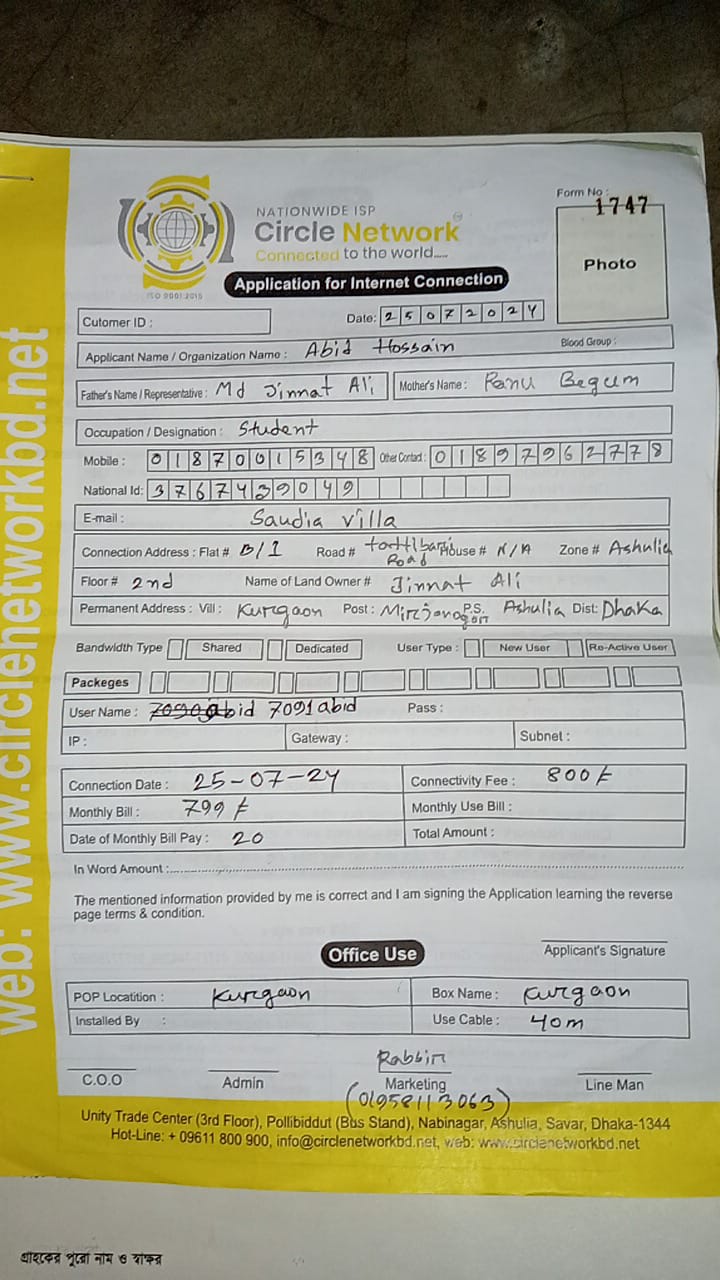 Form No :
1747
NATIONWIDE ISP
Circle Network
Connected to the world.....
ISO 9001:2015
Photo
Application for Internet Connection
Cutomer ID :
Date: 25072024
Applicant Name / Organization Name : Abid Hossain Blood Group :
Father's Name / Representative : Md Jinnat Ali Mother's Name : Ranu Begum
Occupation / Designation : Student
Mobile : 01870015348 Other Contact : 01897962778
National Id: 3767439049
E-mail : Saudia villa
Connection Address : Flat # B/1 Road # Road House # N/A Zone # Ashulia
Floor # 2nd Name of Land Owner # Jinnat Ali
Permanent Address : Vill : Kurgaon Post : P.S. Ashulia Dist: Dhaka
Bandwidth Type Shared Dedicated User Type : New User Re-Active User
Packeges
User Name : 7091abid Pass :
IP : Gateway : Subnet :
Connection Date : 25-07-24 Connectivity Fee : 800 ৳
Monthly Bill : 799 ৳ Monthly Use Bill :
Date of Monthly Bill Pay : 20 Total Amount :
In Word Amount :
The mentioned information provided by me is correct and I am signing the Application learning the reverse
page terms & condition.
Applicant's Signature
Office Use
POP Locatition : Kurgaon Box Name : Kurgaon
Installed By : Use Cable : 40m
Rabbir
C.O.O Admin Marketing Line Man
(01958113063)
Unity Trade Center (3rd Floor), Pollibiddut (Bus Stand), Nabinagar, Ashulia, Savar, Dhaka-1344
Hot-Line: + 09611 800 900, info@circlenetworkbd.net, web: www.circlenetworkbd.net
web: www.circlenetworkbd.net
গ্রাহকের পুরো নাম ও স্বাক্ষর